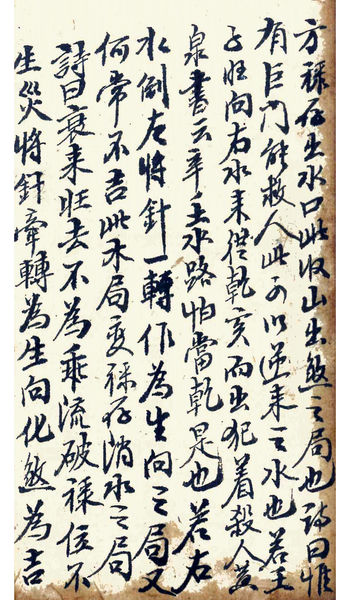 方祿存出水口此收山出煞之局也詩曰惟
有巨門能救人此可以逆来之水也若壬
子旺向右水来從乾亥而出犯着殺人黄
泉書云辛壬水路怕當乾是也若右
水倒左將針一轉作為生向之局又
何常不吉此木局变祿存消水之局
詩曰衰来旺去不為乖流破祿位不
生災將針牽轉為生向化煞為吉